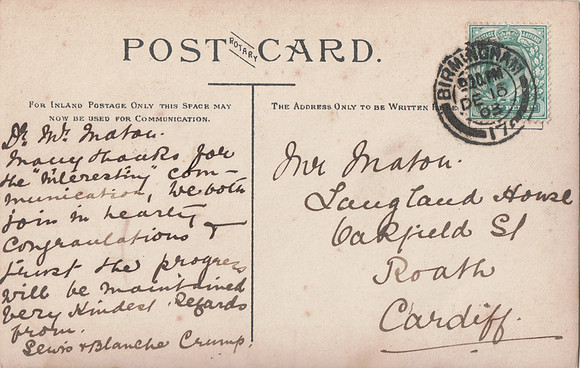 POST CARD.
ROTARY
FOR INLAND POSTAGE ONLY THIS SPACE MAY
NOW BE USED FOR COMMUNICATION.
THE ADDRESS ONLY TO BE WRITTEN
BIRMINGHAM
DE 16
03
Dr Mr Maton.
Many thanks for
the "interesting" com-
munication, we both
join in hearty
congraulations &
trust the progress
will be maintained
very kindest regards
from.
Lewis & Blanche Crump.
Mr Maton.
Langland House
Oakfield St
Roath
Cardiff.